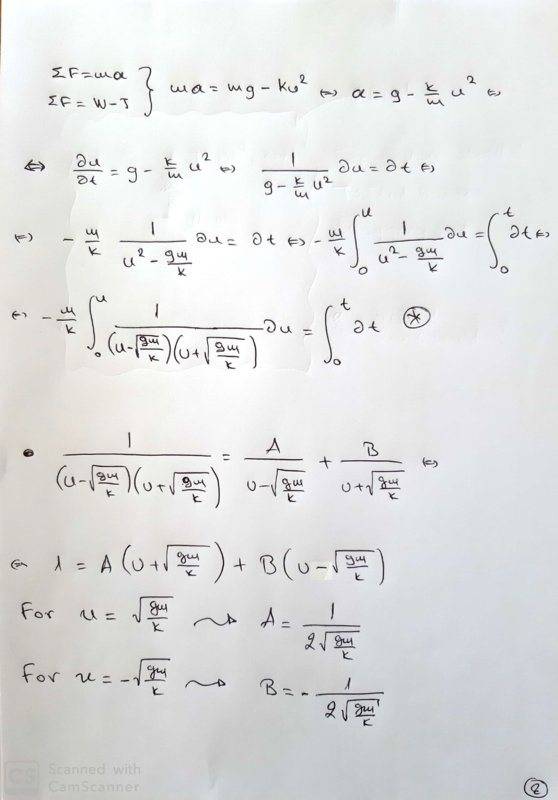 ΣF=ma
ΣF= W-T } ma = mg - ku² ⇔ a = g - k/m u² ⇔
⇔ ∂u/∂t = g - k/m u² ⇔ 1/(g - k/m u²) ∂u = ∂t ⇔
⇔ - m/k 1/(u² - gm/k) ∂u = ∂t ⇔ - m/k ∫₀ᵘ 1/(u² - gm/k) ∂u = ∫₀ᵗ ∂t ⇔
⇔ - m/k ∫₀ᵘ 1/((u-√(gm/k))(u+√(gm/k))) ∂u = ∫₀ᵗ ∂t ⊛
• 1/((u-√(gm/k))(u+√(gm/k))) = A/(u-√(gm/k)) + B/(u+√(gm/k)) ⇔
⇔ 1 = A(u+√(gm/k)) + B(u-√(gm/k))
For u = √(gm/k) ⇝ A = 1/(2√(gm/k))
For u = -√(gm/k) ⇝ B = - 1/(2√(gm/k))
CS Scanned with
CamScanner